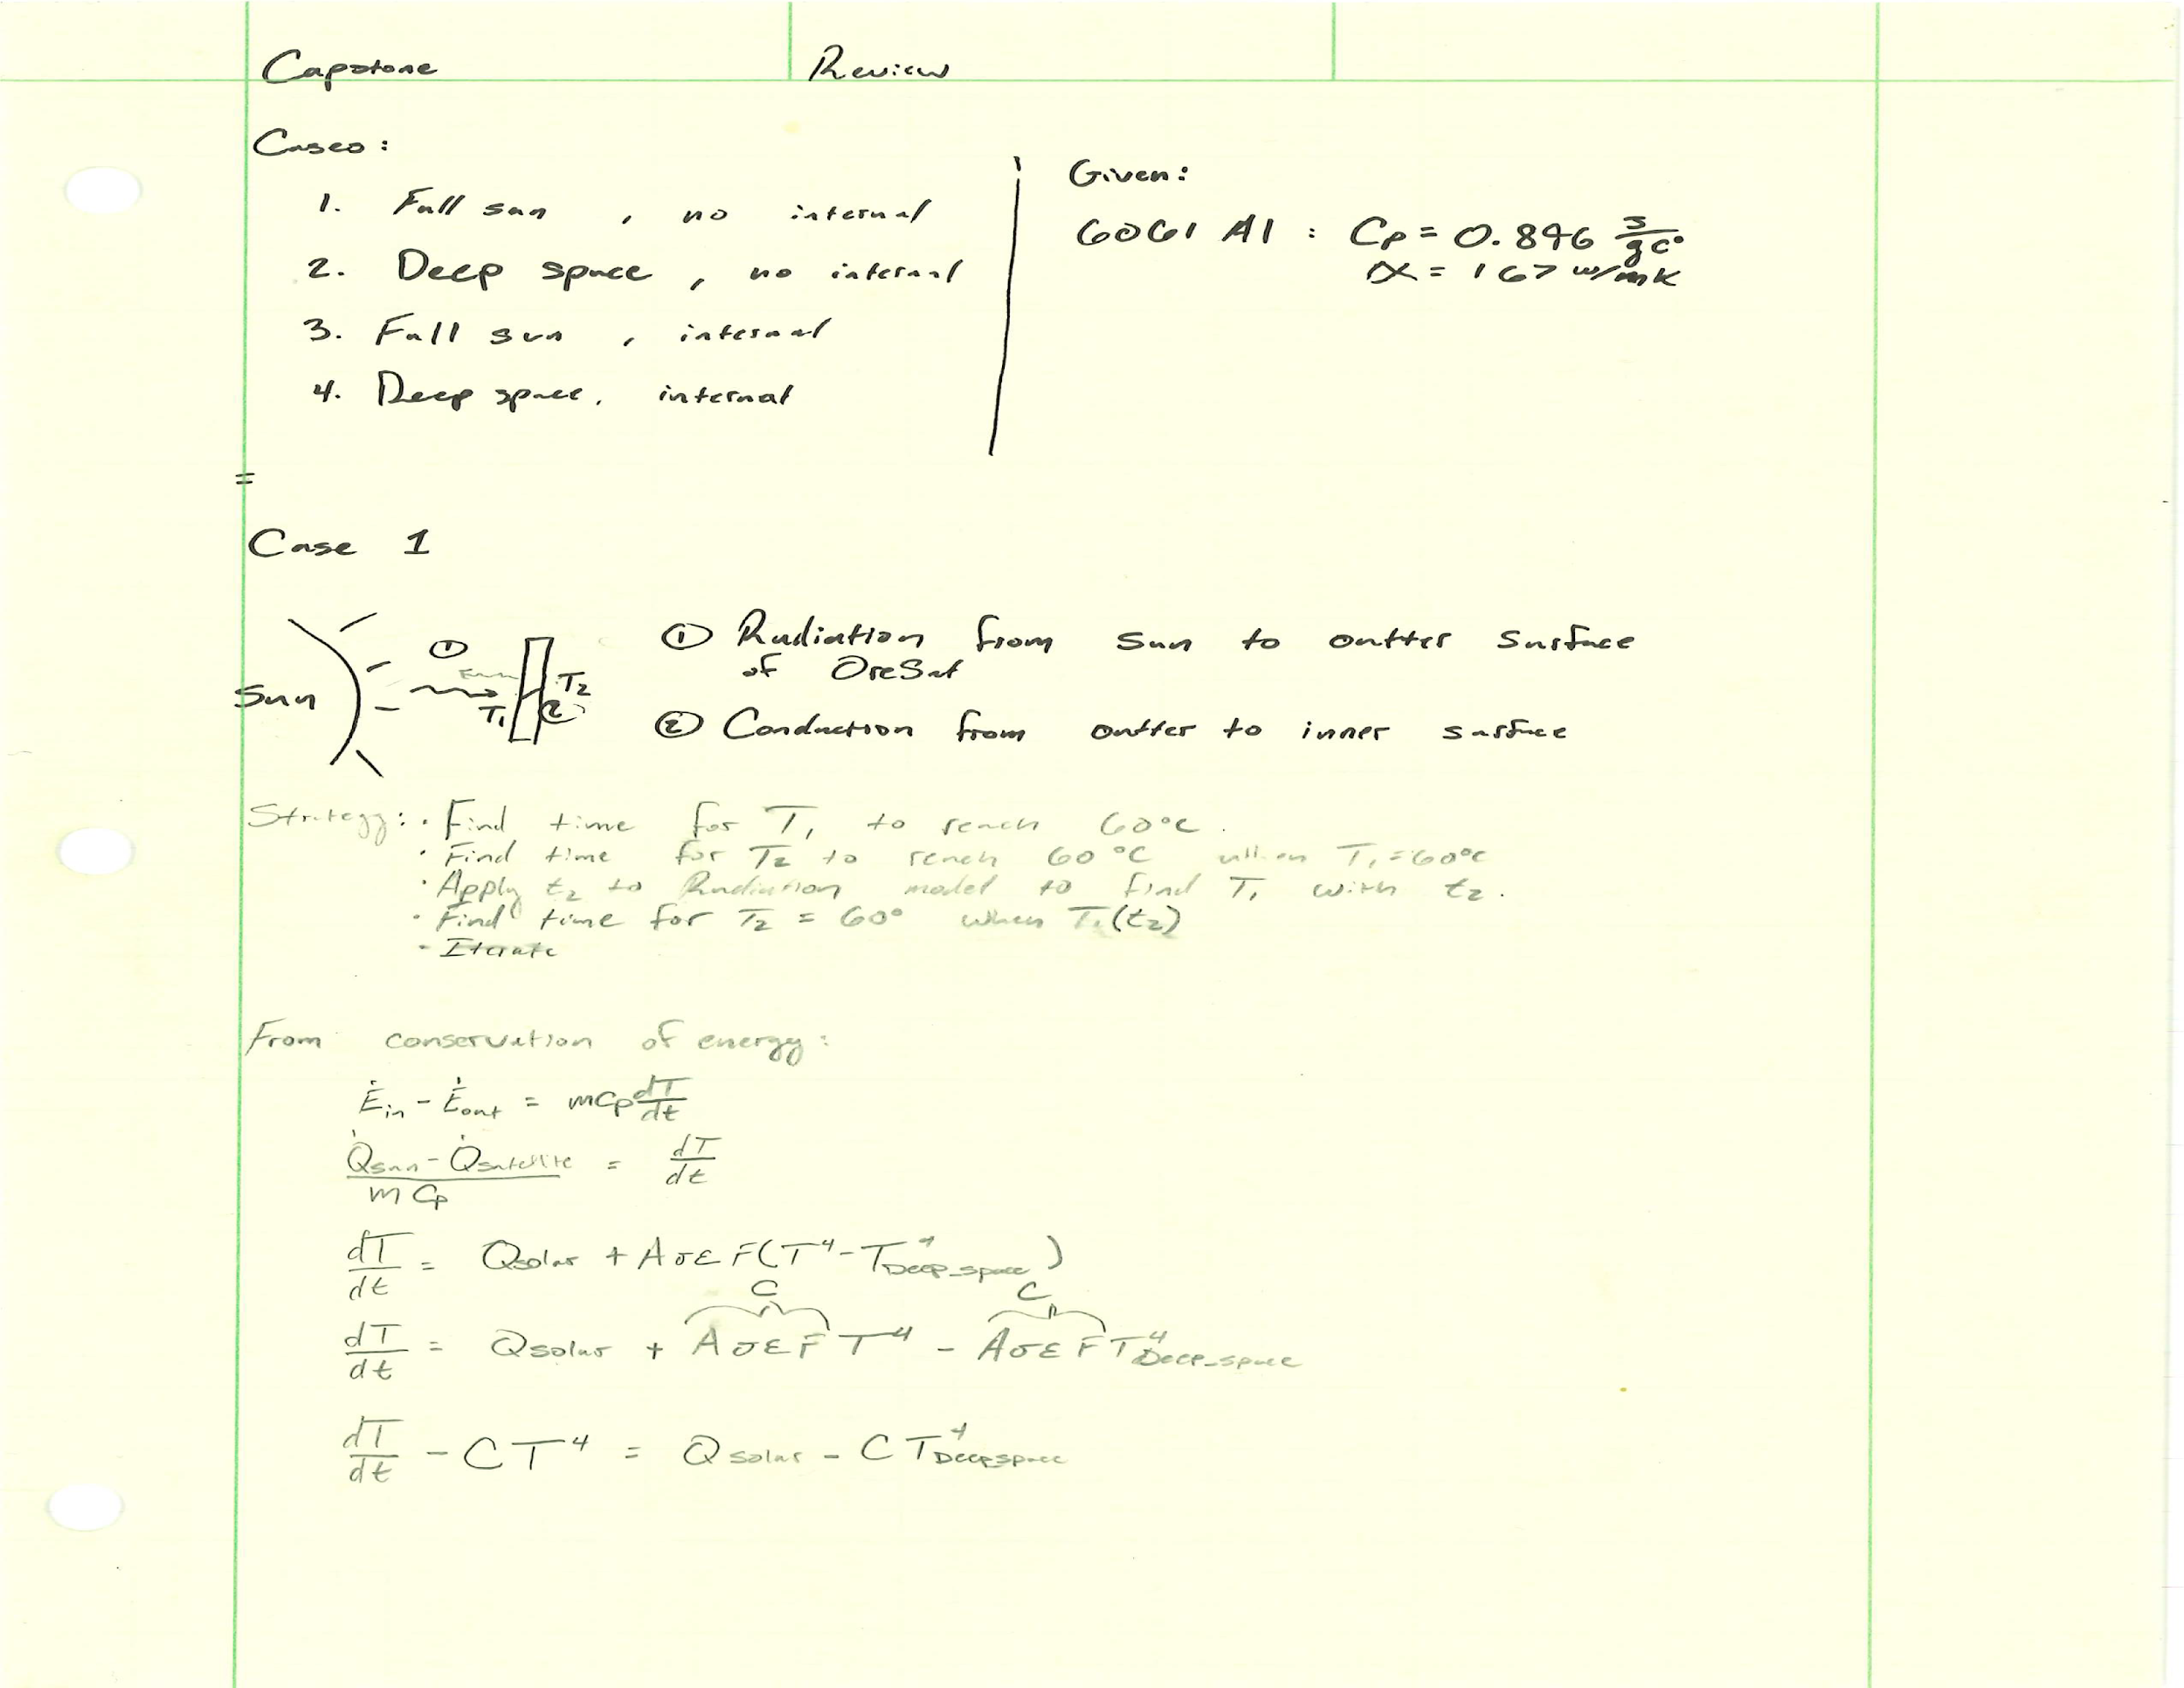 Capstone Review
Cases:
1. Full sun, no internal
2. Deep space, no internal
3. Full sun, internal
4. Deep space, internal
Given:
6061 Al : Cp = 0.896 J/gC°
α = 167 W/mK
=
Case 1
Sun ① T₁ T₂ ②
① Radiation from sun to outter surface
of OreSat
② Conduction from outter to inner surface
Strategy: · Find time for T₁ to reach 60°C.
· Find time for T₂ to reach 60°C when T₁=60°C
· Apply t₂ to Radiation model to find T₁ with t₂.
· Find time for T₂ = 60° when T₁(t₂)
- Iterate
From conservation of energy:
Ėin - Ėout = mCp dT/dt
(Q̇sun - Q̇satellite)/(m Cp) = dT/dt
dT/dt = Qsolar + AσεF(T⁴ - T⁴Deep_space)
C C
dT/dt = Qsolar + AσεFT⁴ - AσεFT⁴Deep_space
dT/dt - CT⁴ = Qsolar - CT⁴Deepspace